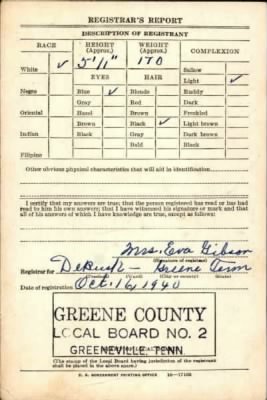 REGISTRAR'S REPORT
DESCRIPTION OF REGISTRANT
RACE HEIGHT (Approx.) WEIGHT (Approx.) COMPLEXION
White ✓ 5' 11" 170 Sallow
EYES HAIR Light ✓
Negro Blue ✓ Blonde Ruddy
Gray Red Dark
Oriental Hazel Brown Freckled
Brown Black ✓ Light brown
Indian Black Gray Dark brown
Bald Black
Filipino
Other obvious physical characteristics that will aid in identification
I certify that my answers are true; that the person registered has read or has had
read to him his own answers; that I have witnessed his signature or mark and that
all of his answers of which I have knowledge are true, except as follows:
Mrs. Eva Gibson
(Signature of registrar)
Registrar for DeBusk - Greene Tenn
Date of registration Oct. 16, 1940
GREENE COUNTY
LOCAL BOARD NO. 2
GREENEVILLE, TENN
(The stamp of the Local Board having jurisdiction of the registrant
shall be placed in the above space.)
U. S. GOVERNMENT PRINTING OFFICE 16-17105